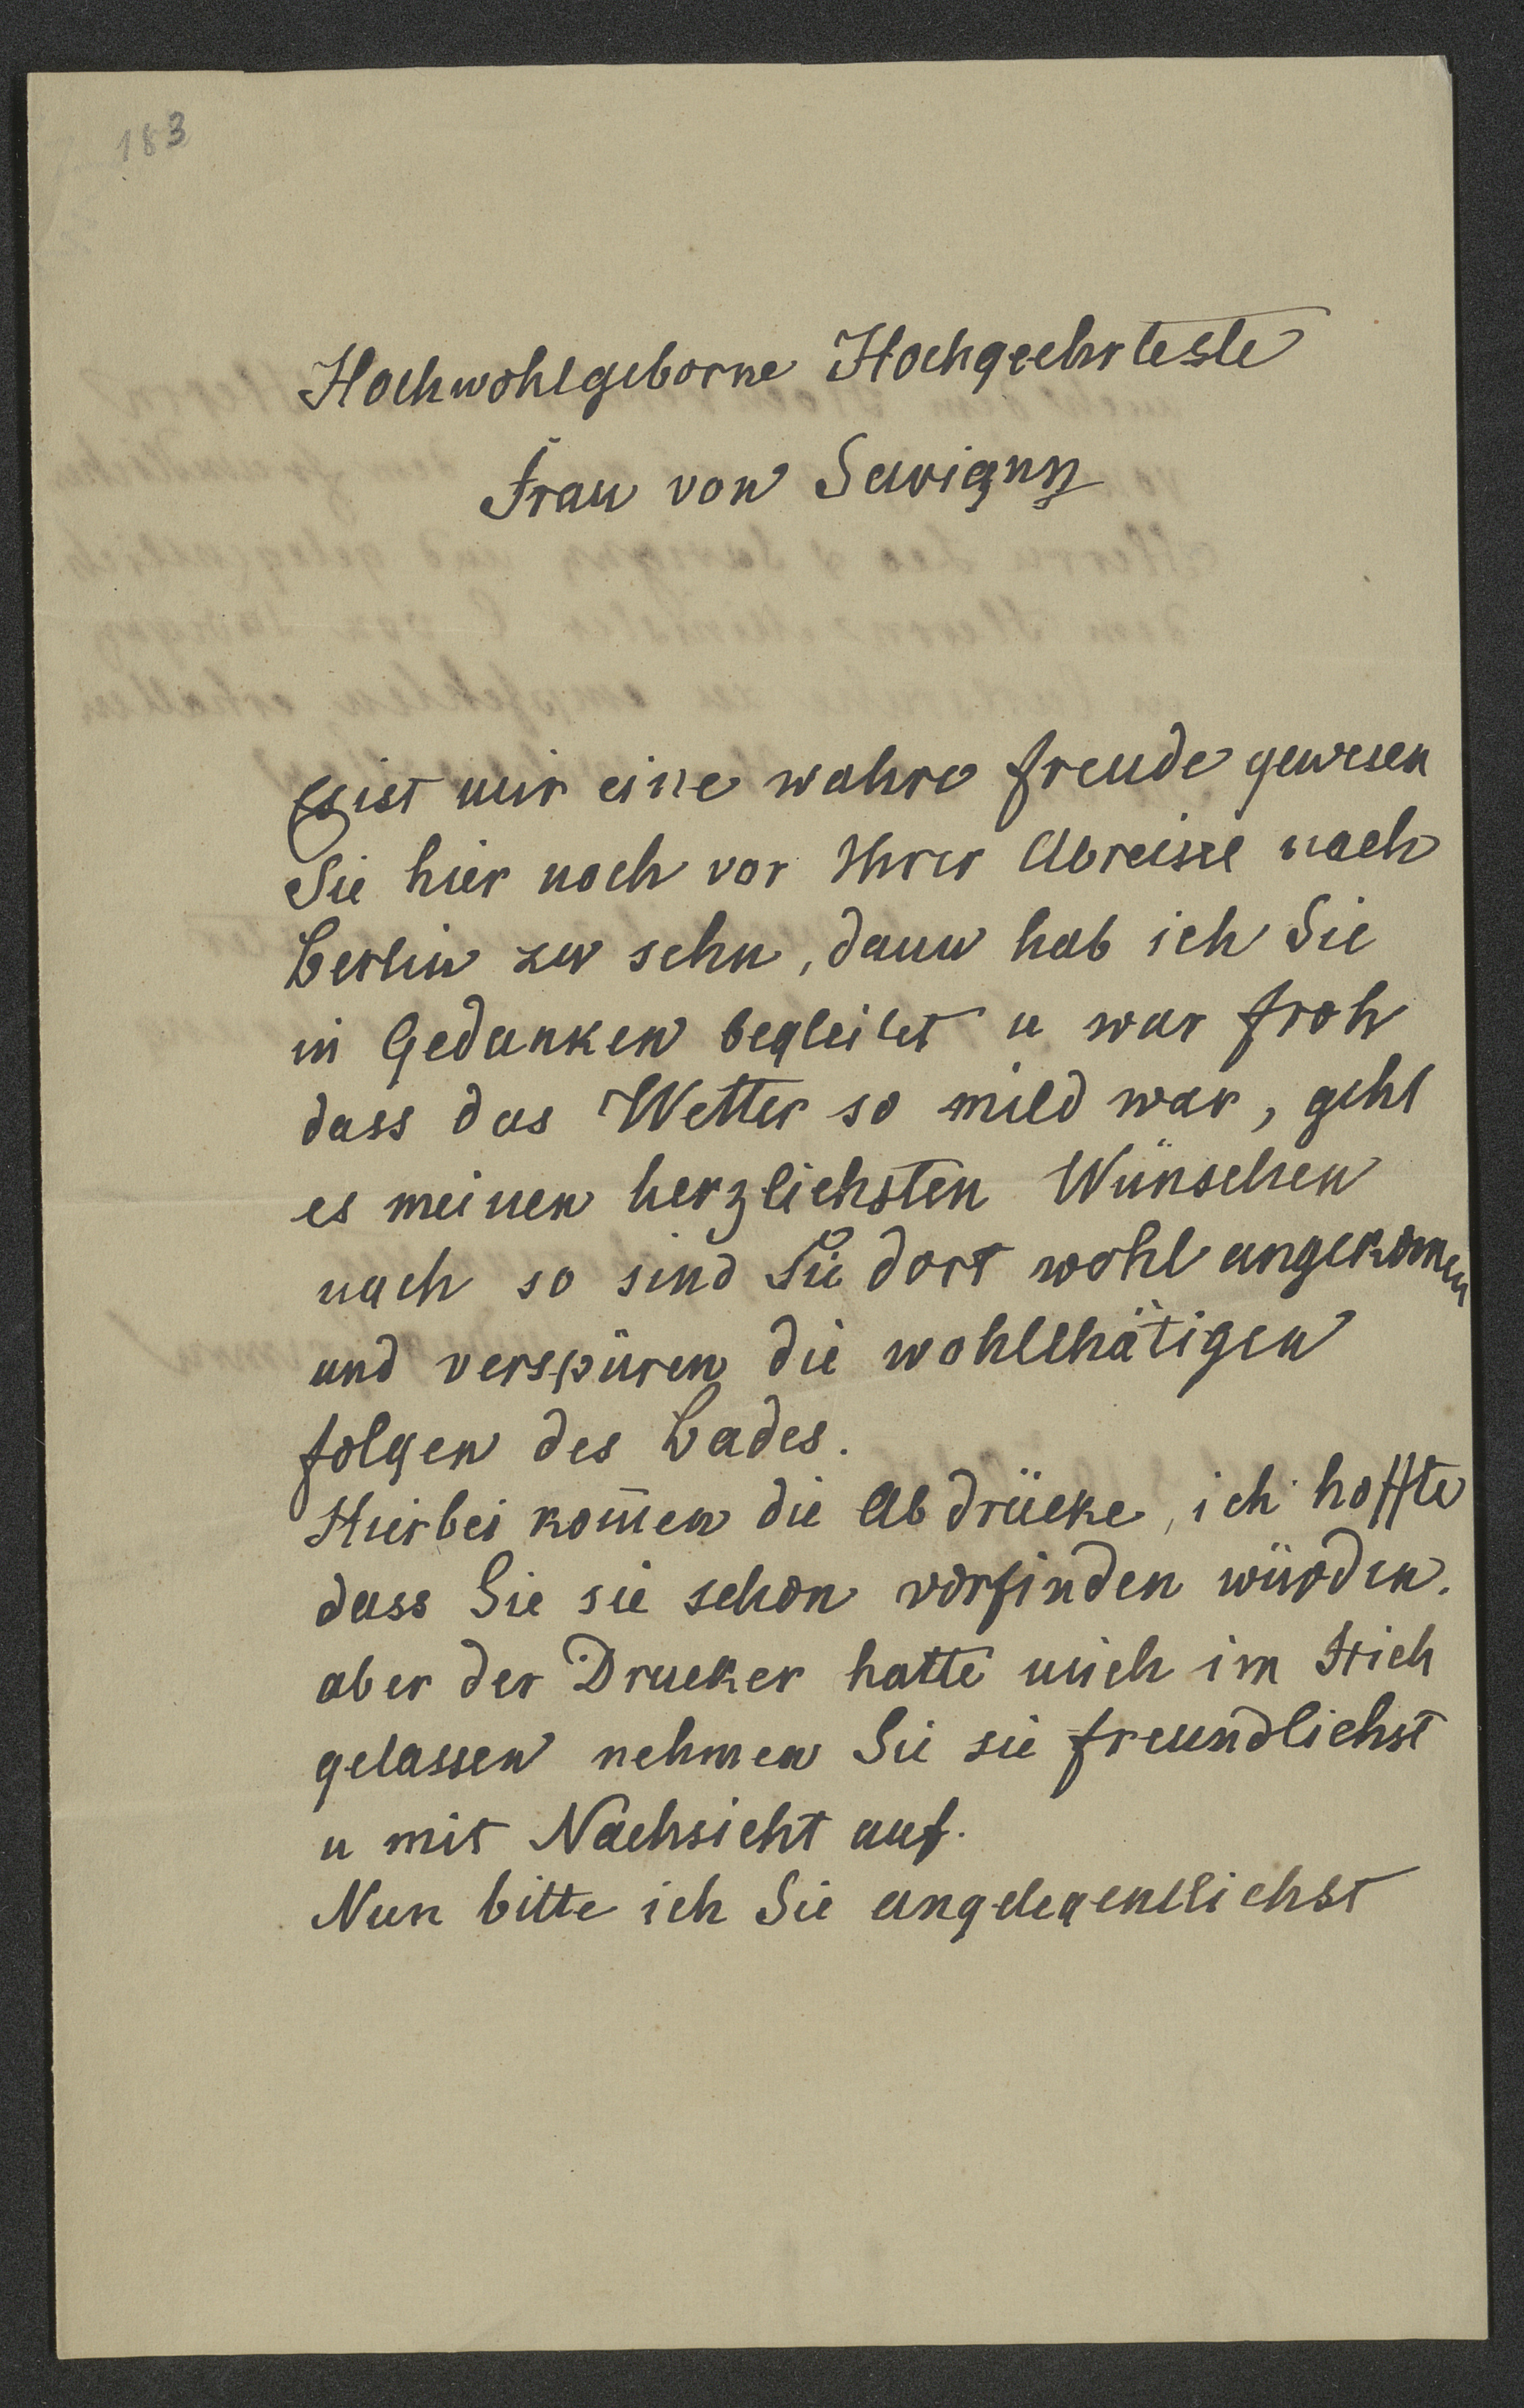 183
Hochwohlgeborne Hochgeehrteste
Frau von Savigny
Es ist mir eine wahre Freude gewesen
Sie hier noch vor Ihrer Abreise nach
Berlin zu sehn, dann hab ich Sie
in Gedanken begleitet u war froh
dass das Wetter so mild war, geht
es meinen herzlichsten Wünschen
nach so sind Sie dort wohl angekom̄en
und verspüren die wohlthätigen
Folgen des Bades.
Hierbei kom̄en die Abdrücke, ich hoffte
dass Sie sie schon vorfinden würden.
aber der Drucker hatte mich im Stich
gelassen nehmen Sie sie freundlichst
u mit Nachsicht auf.
Nun bitte ich Sie angelegentlichst